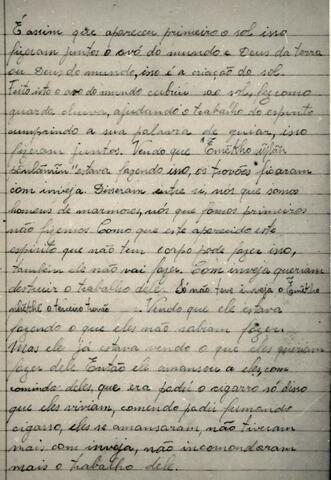 É assim que apareceu primeiro o sol isso
fizeram juntos o avó do mundo e Deus da terra
ou Deus do mundo, isso é a criação do sol.
Feito isto o avo do mundo cubriu ao sol, fez como
guarda chuva, ajudando o trabalho do espirito
cumprindo a sua palavra de guiar, isso
fizeram juntos. Vendo que "Ẽmẽkho
estava fazendo isso, os trovões ficaram
com inveja. Disseram entre si, nós que somos
homens de marmores, nós que fomos primeiros
não fizemos. Como que este aparecido este
espirito que não tem corpo pode fazer isso,
também ele não vai fazer. Com inveja queriam
destruir o trabalho dele. Só não teve inveja o Ẽmẽkho
o terceiro trovão. Vendo que ele estava
fazendo o que eles não sabiam fazer.
Mas ele já estava vendo o que eles queriam
fazer dele Então ele amansou a eles, com
comida deles, que era padú e cigarro só disso
que eles viviam, comendo padú fumando
cigarro, eles se amansaram, não tiveram
mais com inveja, não incomodaram
mais o trabalho dele.